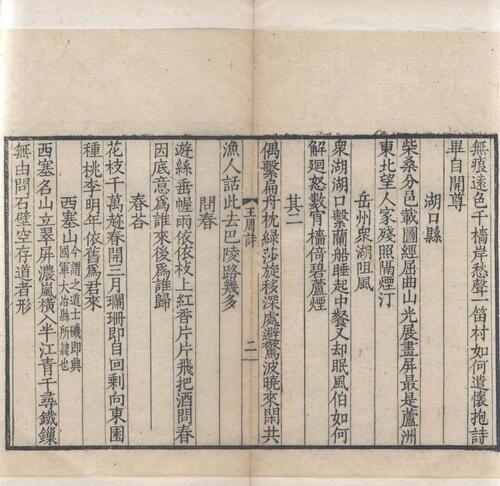 無痕遠色千檣岸愁聲一笛村如何遣懷抱詩
畢自開尊
湖口縣
柴桑分邑載圖經屈曲山光展畫屏最是蘆洲
東北望人家殘照隔煙汀
岳州衆湖阻風
衆湖湖口繫蘭船睡起中餐又却眠風伯如何
解迴怒數宵檣倚碧蘆煙
其二
偶繫扁舟枕綠莎旋移深處避驚波曉來閑共
漁人話此去巴陵路幾多
王周詩
二
問春
遊絲垂幄雨依依枝上紅香片片飛把酒問春
因底意爲誰來後爲誰歸
春荅
花枝千萬趁春開三月瓓珊即自回剩向東園
種桃李明年依舊爲君來
西塞山今謂之道士磯即興
國軍大冶縣所隷也
西塞名山立翠屏濃嵐橫入半江青千尋鐵鏁
無由問石壁空存道者形